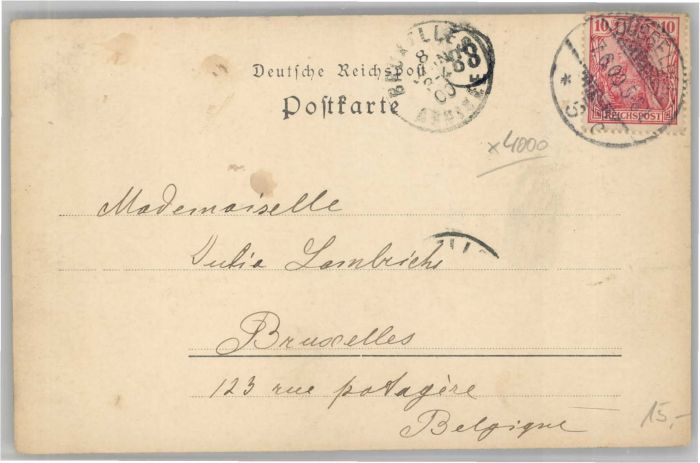 Deutsche Reichspost
Postkarte
10 10
REICHSPOST
BRUXELLES
8
00
ARRIVEE
88
x4000
Mademoiselle
Julia Lambrichs
Bruxelles
123 rue potagère
Belgique
15,-